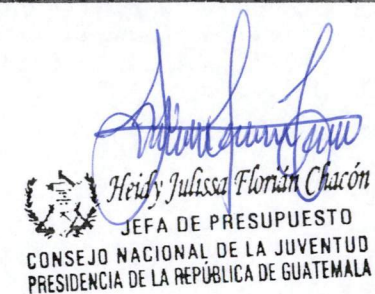 Heidy Julissa Florián Chacón
JEFA DE PRESUPUESTO
CONSEJO NACIONAL DE LA JUVENTUD
PRESIDENCIA DE LA REPÚBLICA DE GUATEMALA